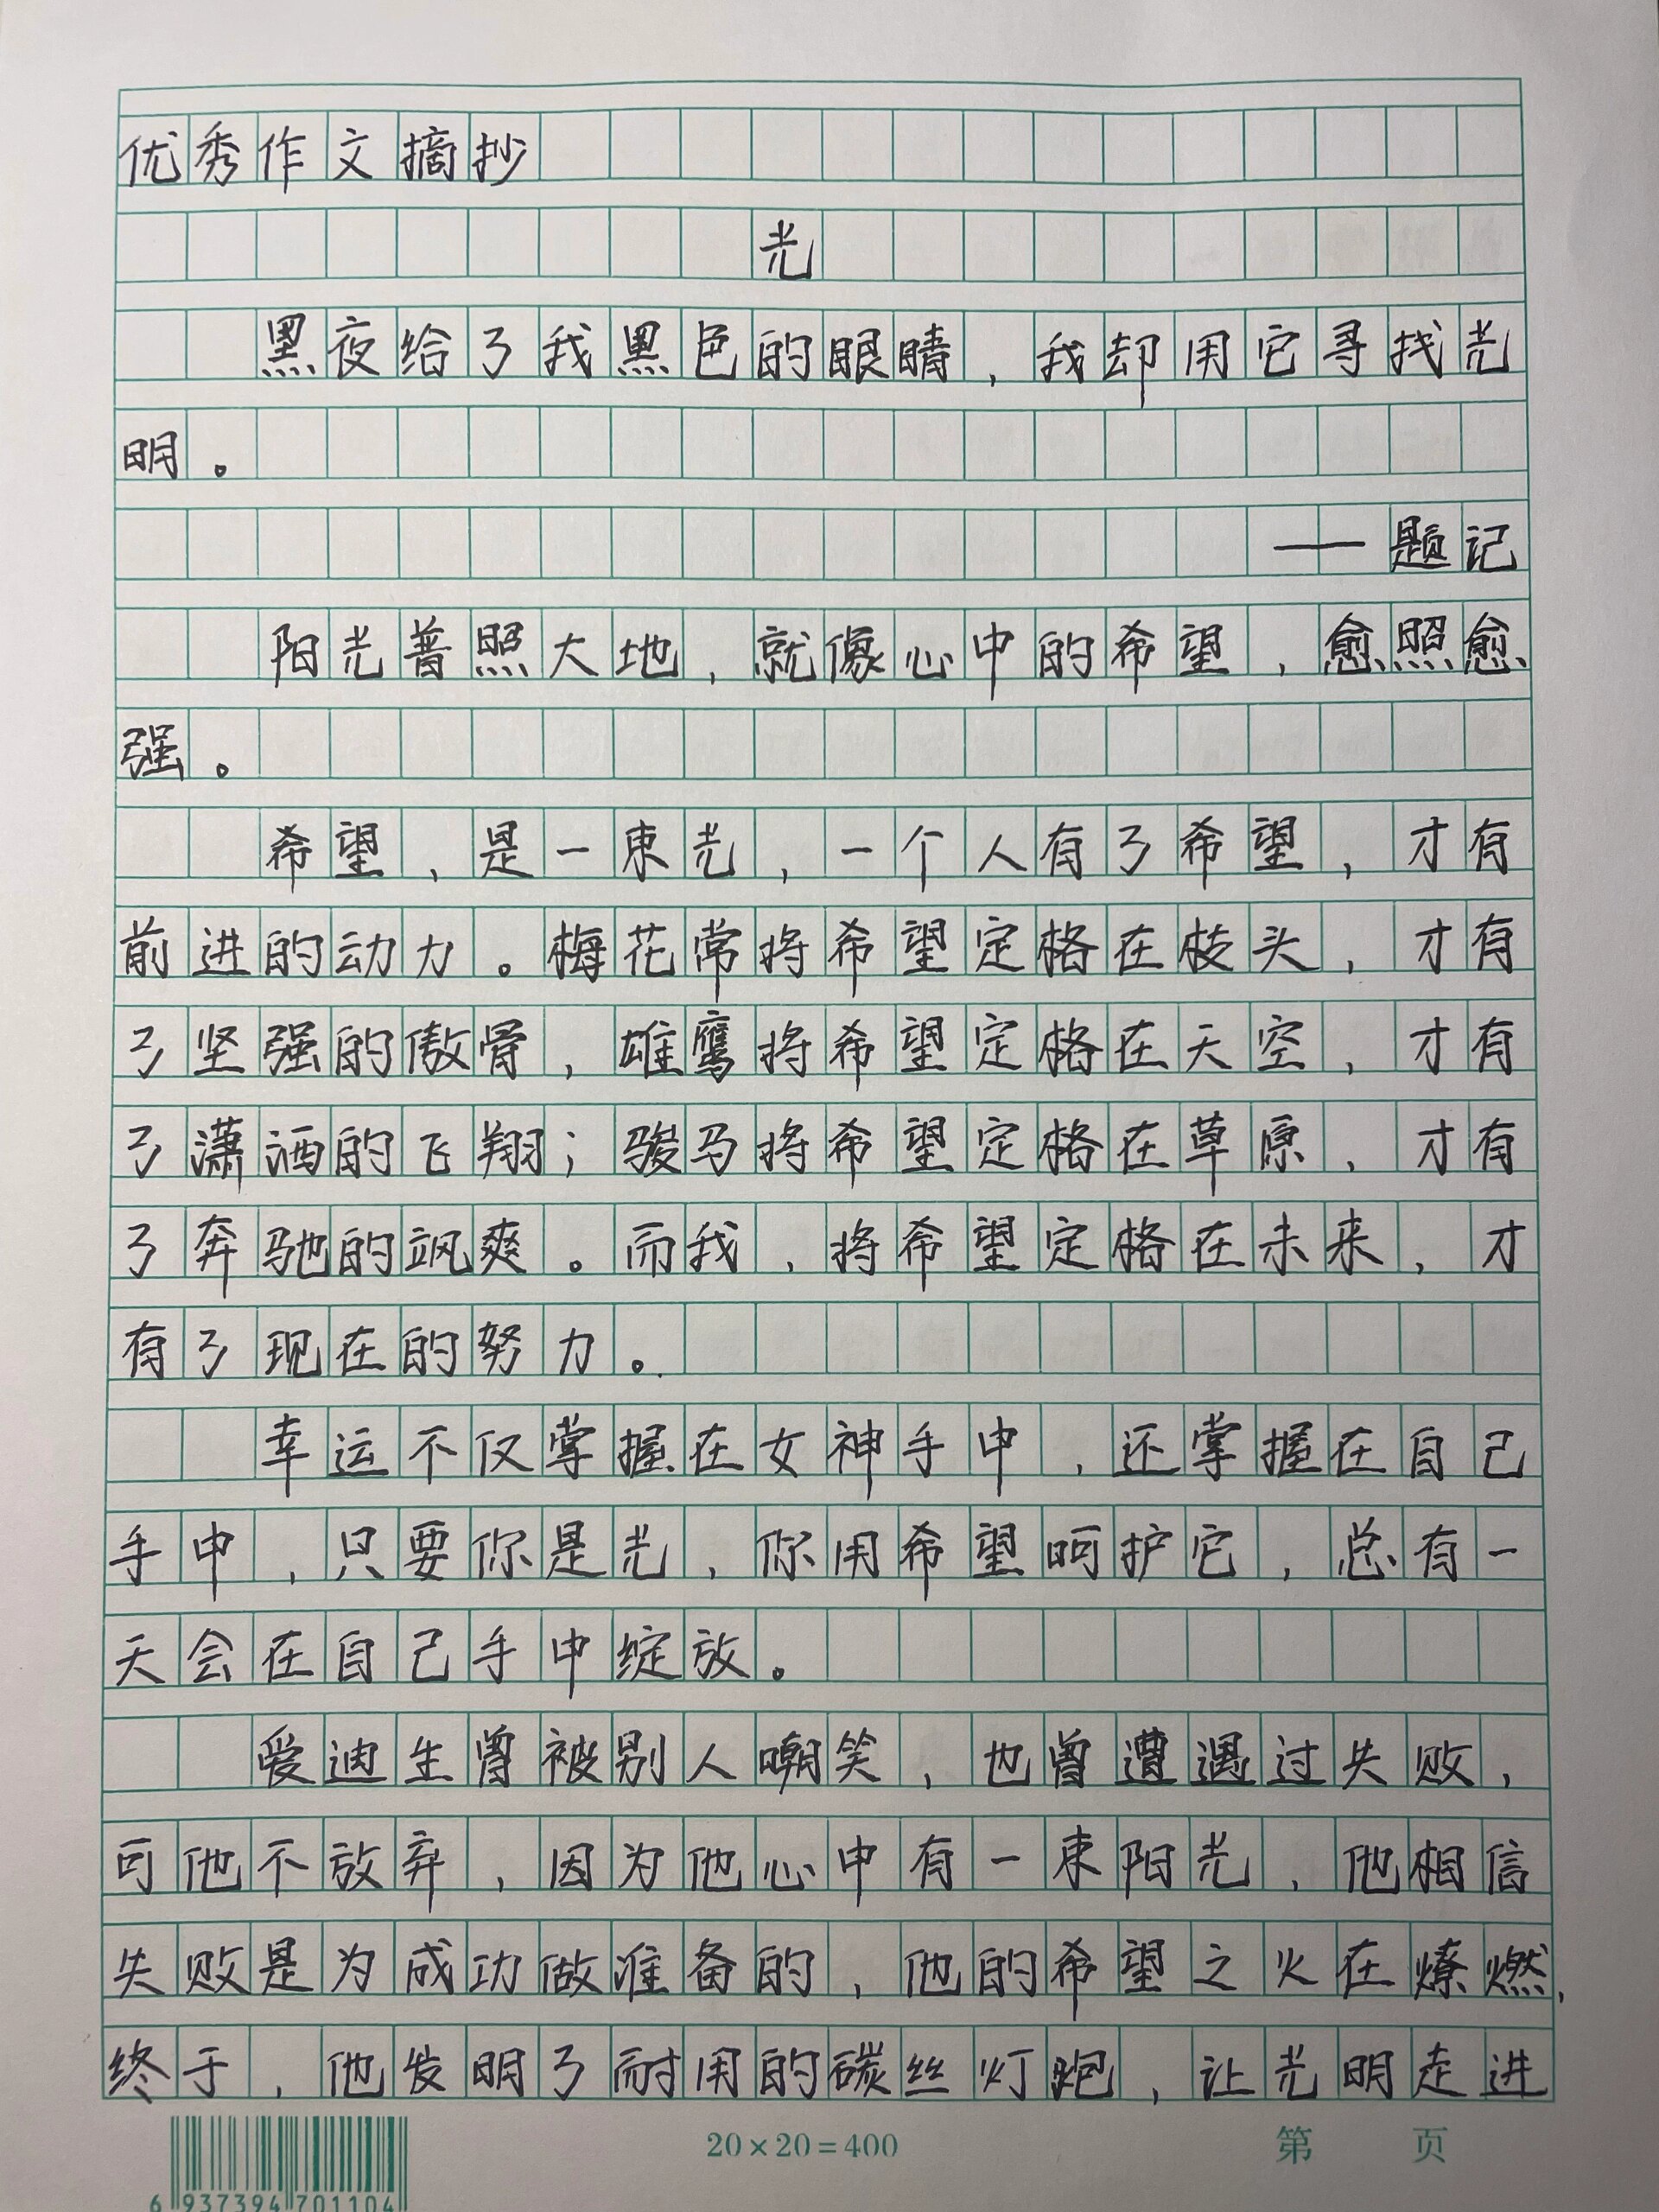 优秀作文摘抄
光
黑夜给了我黑色的眼睛，我却用它寻找光
明。
——题记
阳光普照大地，就像心中的希望，愈照愈
强。
希望，是一束光，一个人有了希望，才有
前进的动力。梅花常将希望定格在枝头，才有
了坚强的傲骨，雄鹰将希望定格在天空，才有
了潇洒的飞翔；骏马将希望定格在草原，才有
了奔驰的飒爽。而我，将希望定格在未来，才
有了现在的努力。
幸运不仅掌握在女神手中，还掌握在自己
手中，只要你是光，你用希望呵护它，总有一
天会在自己手中绽放。
爱迪生曾被别人嘲笑，也曾遭遇过失败，
可他不放弃，因为他心中有一束阳光，他相信
失败是为成功做准备的，他的希望之火在燎燃，
终于，他发明了耐用的碳丝灯炮，让光明走进
20×20=400
第 页
6 937394 701104